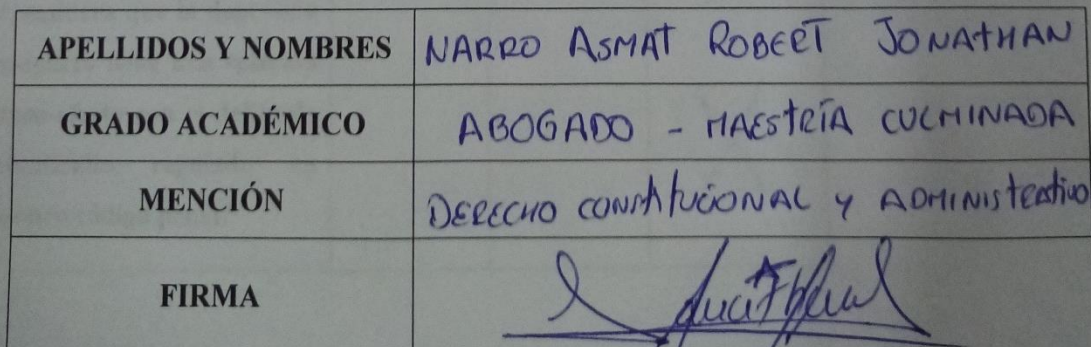 APELLIDOS Y NOMBRES NARRO ASMAT ROBERT JONATHAN
GRADO ACADÉMICO ABOGADO - MAESTRÍA CULMINADA
MENCIÓN DERECHO CONSTITUCIONAL Y ADMINISTRATIVO
FIRMA